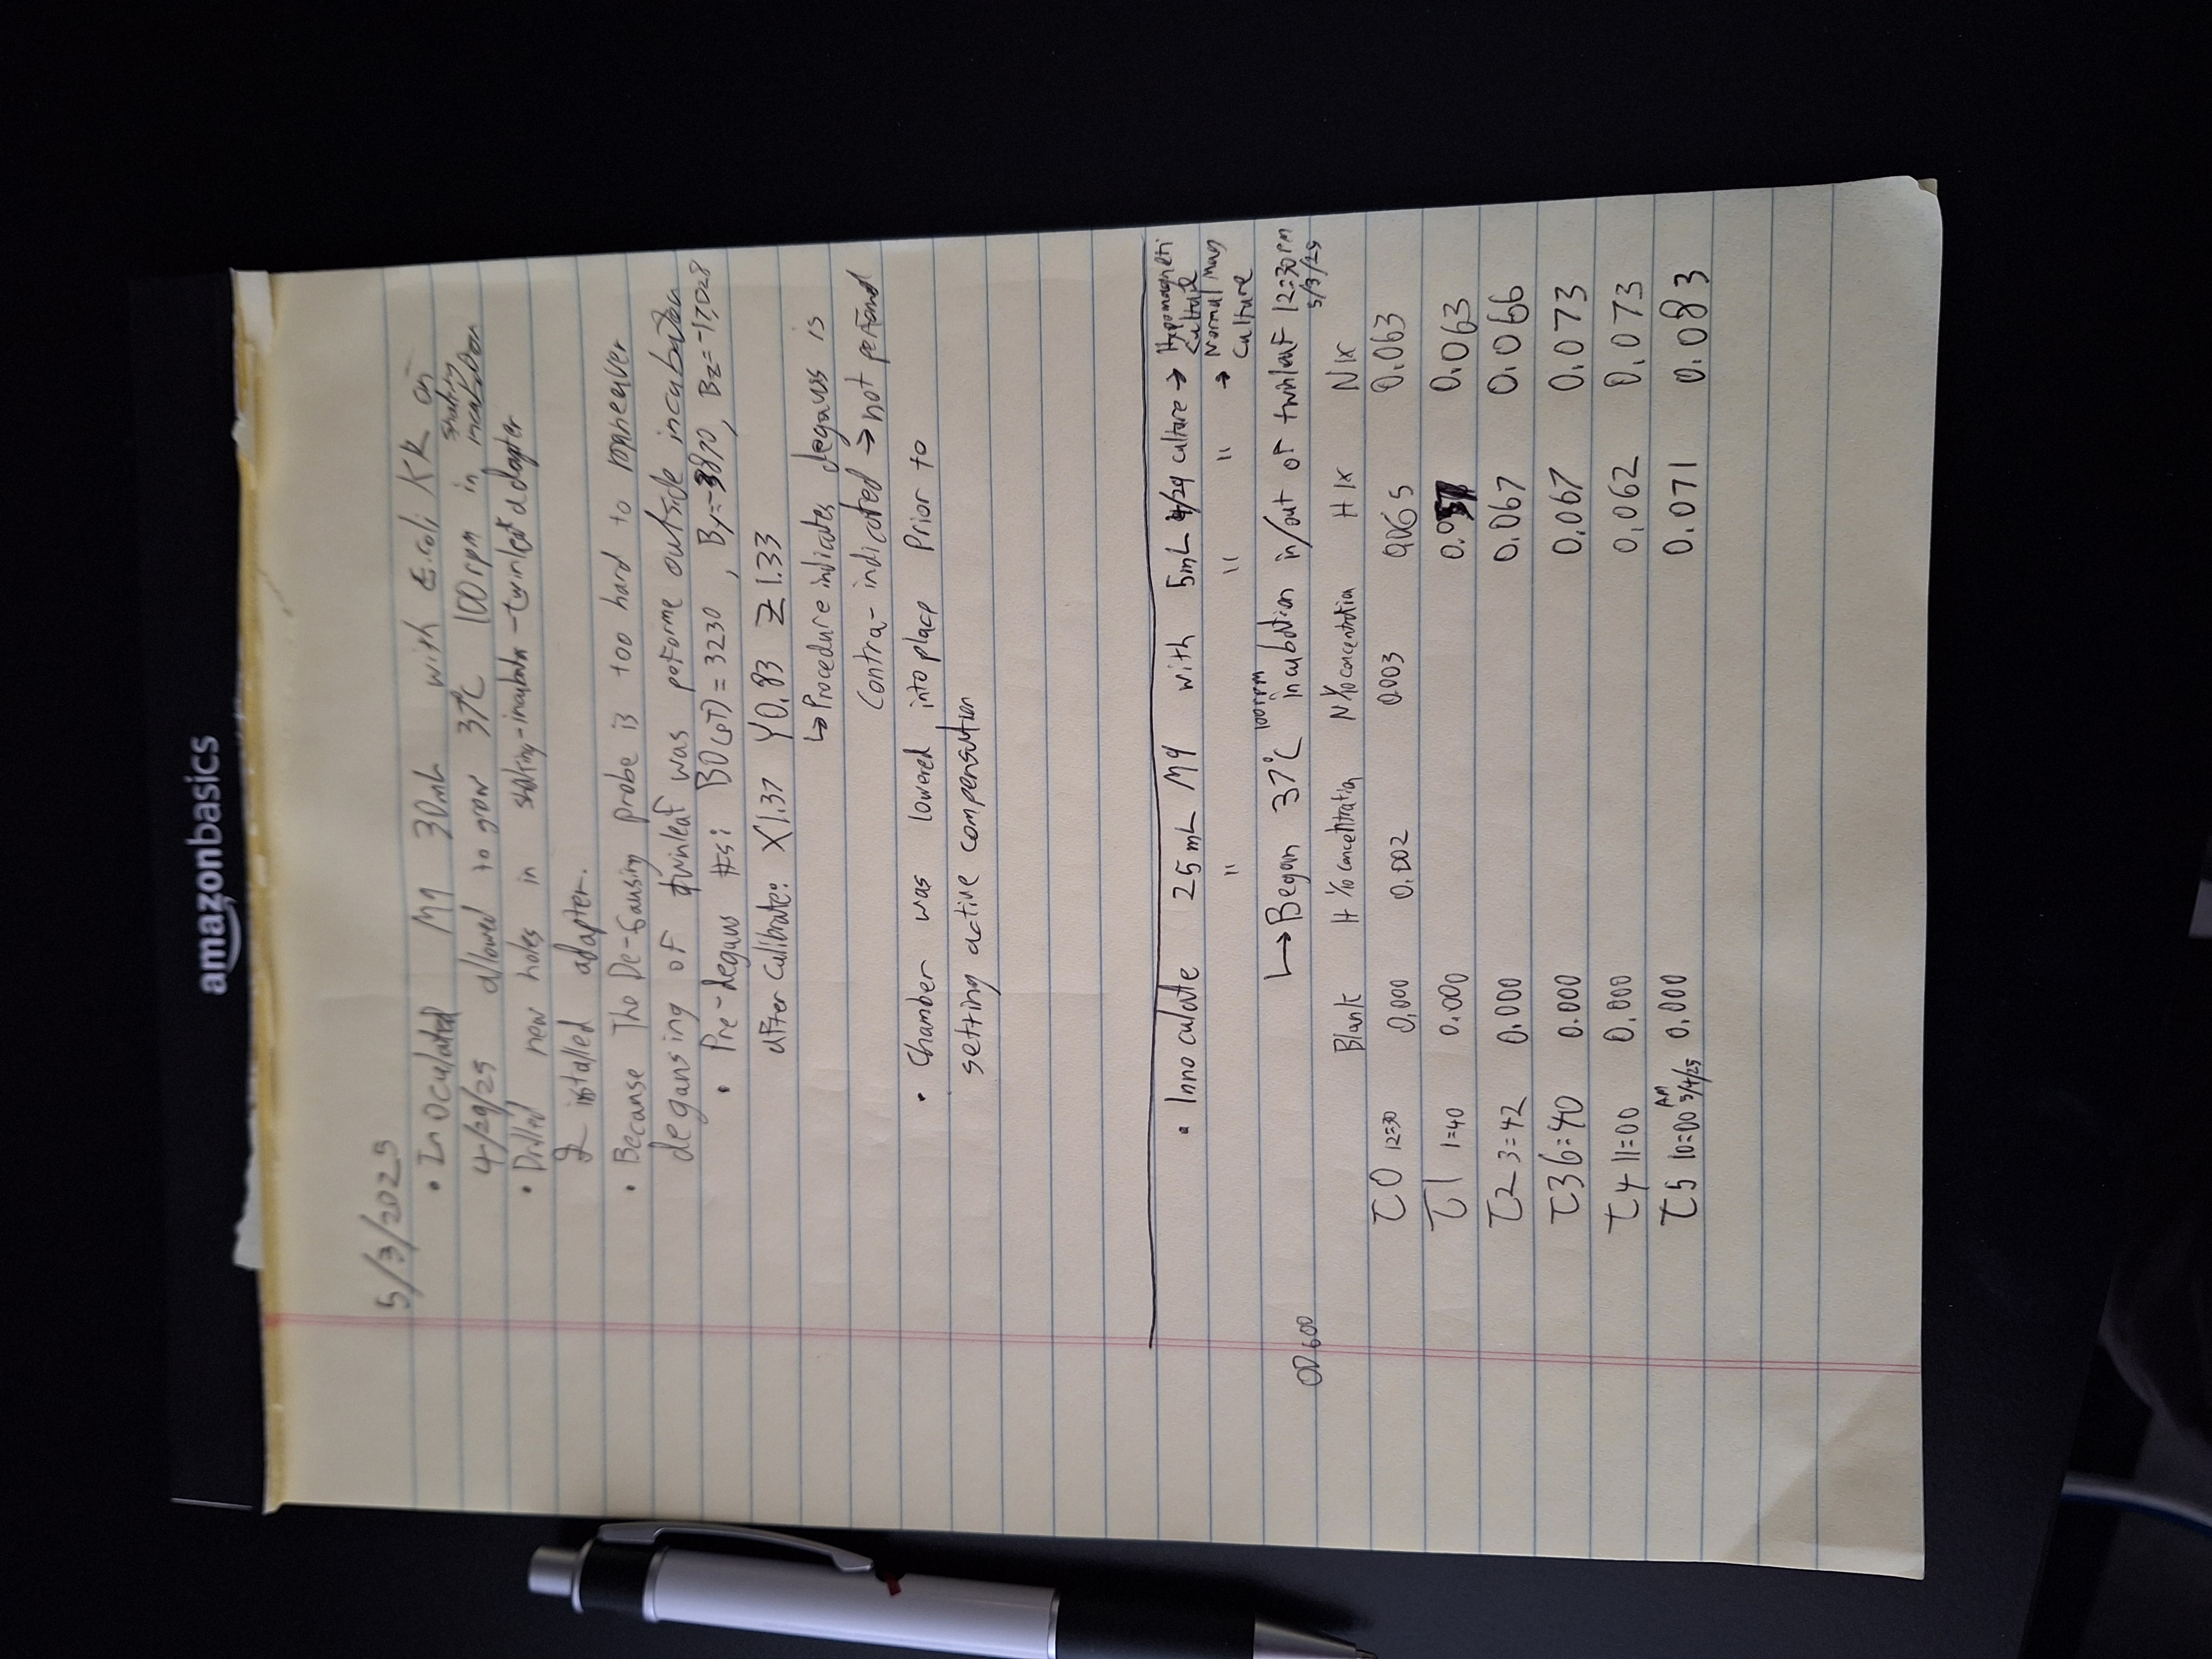 amazonbasics
5/3/2025
• Inoculated M9 30mL with E.coli on
4/29/25 allowed to grow 37°C 100rpm in shaking incubator
• Drilled new holes in shaking-incubator-twinleaf adapter
& installed adapter.
• Because The De-Gausing probe is too hard to maneuver
degausing of twinleaf was outside incubator
• Pre-degauss #s: B0(pT) = 3230 , By=-3870, Bz=-17,028
after Calibrate: X1.37 Y0.83 Z1.33
↳ Procedure indicates degauss is
Contra-indicated → not
• Chamber was lowered into place Prior to
setting active compensation
• Innoculate 25mL M9 with 5mL 4/29 culture → Hypomagneti Culture
" " " → Normal Mag Culture
↳ Began 37°C 100rpm incubation in/out of twinleaf 12:30pm 5/3/25
OD600
Blank H 1/10 concentration N 1/10 concentration H 1x N 1x
T0 12:30 0.000 0.002 0.003 0.065 0.063
T1 1:40 0.000 0.063
T2 3:42 0.000 0.067 0.066
T3 6:40 0.000 0.067 0.073
T4 11:00 0.000 0.062 0.073
T5 10:00 AM 5/4/25 0.000 0.071 0.083